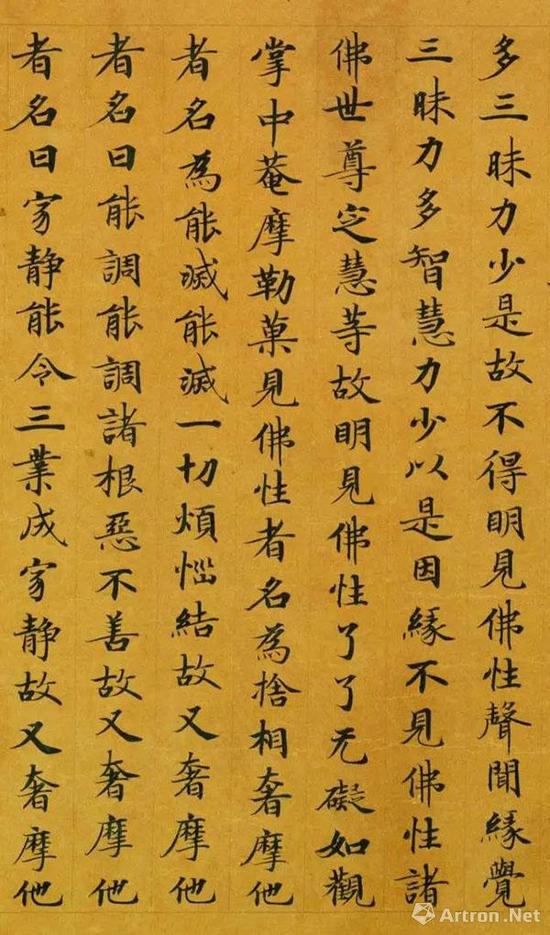 多三昧力少是故不得明見佛性聲聞緣覺
三昧力多智慧力少以是因緣不見佛性諸
佛世尊㝎慧等故明見佛性了了无礙如觀
掌中菴摩勒菓見佛性者名為捨相奢摩他
者名為能滅能滅一切煩惱結故又奢摩他
者名曰能調能調諸根惡不善故又奢摩他
者名曰寂静能令三業成寂静故又奢摩他
Artron.Net